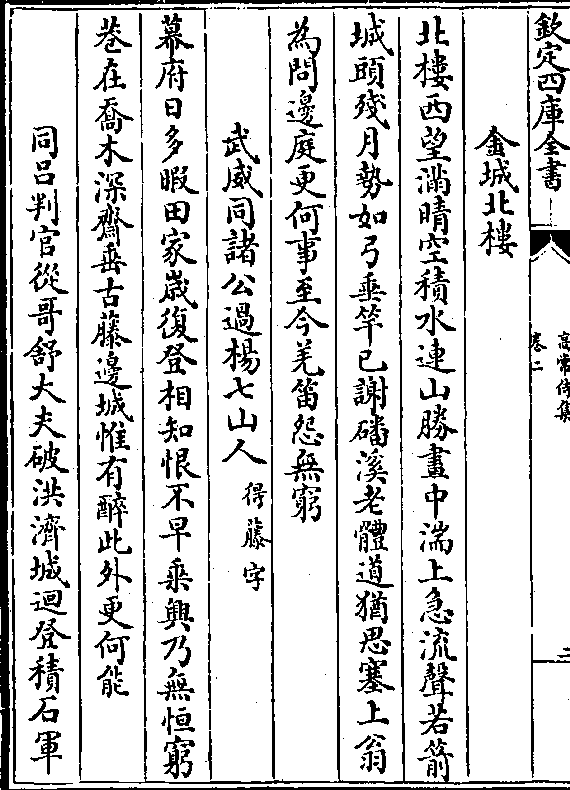 欽定四庫全書
高常侍集
卷二
二
金城北樓
北樓西望滿晴空積水連山勝畫中湍上急流聲若箭
城頭殘月勢如弓垂竿已謝磻溪老體道猶思塞上翁
為問邊庭更何事至今羌笛怨無窮
武威同諸公過楊七山人得藤字
幕府日多暇田家歳復登相知恨不早乘興乃無恒窮
巷在喬木深齋垂古藤邊城惟有醉此外更何能
同吕判官從哥舒大夫破洪濟城迴登積石軍